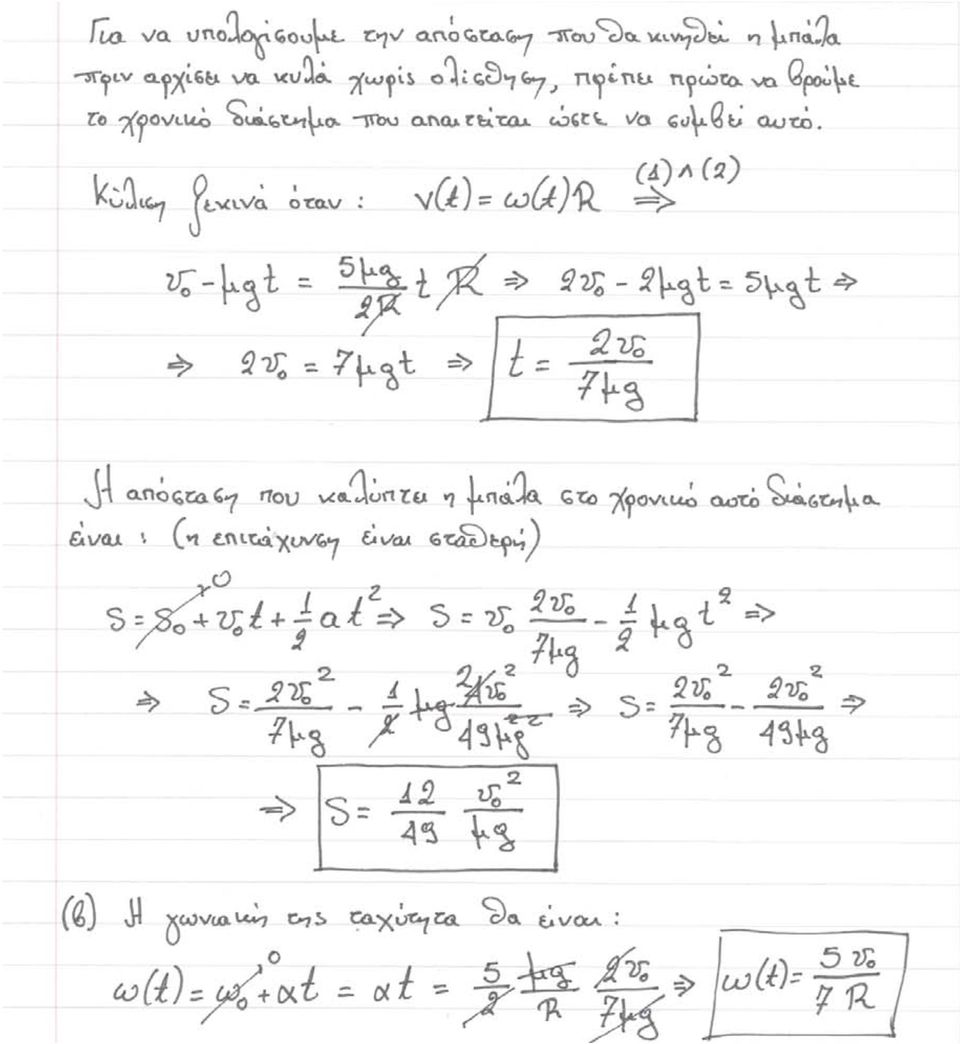 Για να υπολογίσουμε την απόσταση που θα κινηθεί η μπάλα
πριν αρχίσει να κυλά χωρίς ολίσθηση, πρέπει πρώτα να βρούμε
το χρονικό διάστημα που απαιτείται ώστε να συμβεί αυτό.
Κύλιση ξεκινά όταν : v(t) = ω(t)R (1)∧(2) ⇒
v₀ - μgt = 5μg/2R t R ⇒ 2v₀ - 2μgt = 5μgt ⇒
⇒ 2v₀ = 7μgt ⇒ t = 2v₀/7μg
Η απόσταση που καλύπτει η μπάλα στο χρονικό αυτό διάστημα
είναι : (η επιτάχυνση είναι σταθερή)
S = S₀→0 + v₀t + 1/2 at² ⇒ S = v₀ 2v₀/7μg - 1/2 μgt² ⇒
⇒ S = 2v₀²/7μg - 1/2 μg 2 4v₀²/49μ²g² ⇒ S = 2v₀²/7μg - 2v₀²/49μg ⇒
⇒ S = 12/49 v₀²/μg
(β) Η γωνιακή της ταχύτητα θα είναι :
ω(t) = ω₀→0 + αt = αt = 5/2 μg/R 2v₀/7μg ⇒ ω(t) = 5v₀/7R